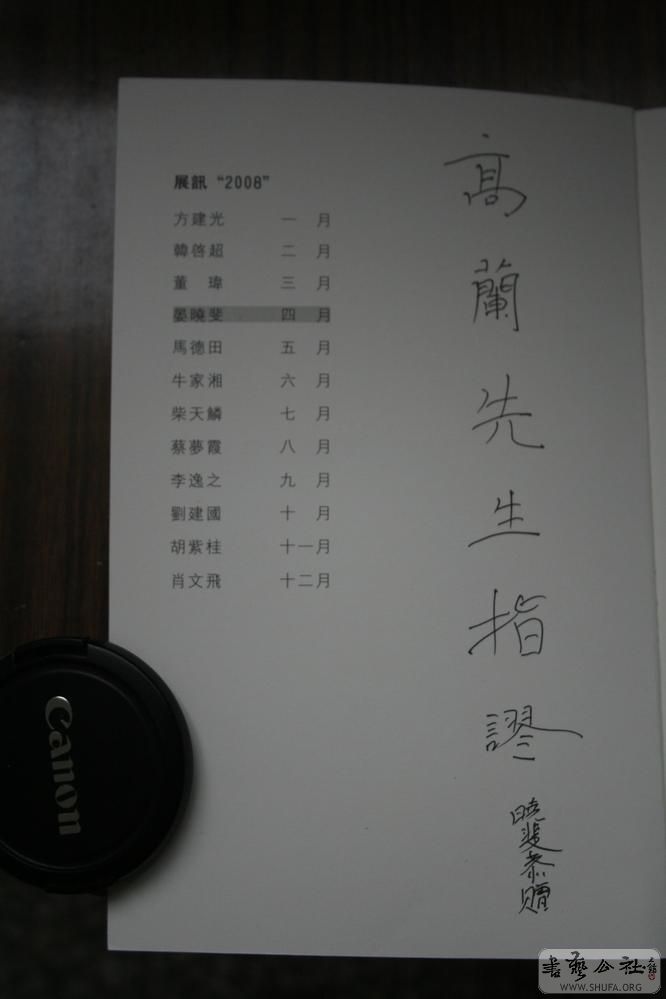 展訊 “2008”
方建光 一 月
韓啓超 二 月
董 瑋 三 月
晏曉斐 四 月
馬德田 五 月
牛家湘 六 月
柴天鱗 七 月
蔡夢霞 八 月
李逸之 九 月
劉建國 十 月
胡紫桂 十一月
肖文飛 十二月
高蘭先生指謬
曉斐恭贈
Canon
書藝公社
WWW.SHUFA.ORG